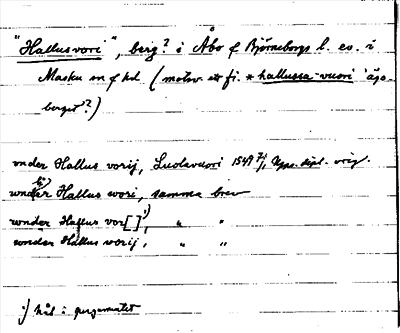 "Hallusvori", berg? i Åbo o Björneborgs l. ev. i
Masku sn o hd. (motsv. ett fi. *hallussa-vuori 'ägo-
berget'?)
under Hallus vorij, Luolavuori 1549 7/1 Upps. dipl. orig.
wnder Hallus wori, samma brev
wnder Hallus vor[ ]¹), " "
wnder Hallus vorij, " "
¹) hål i pergamentet